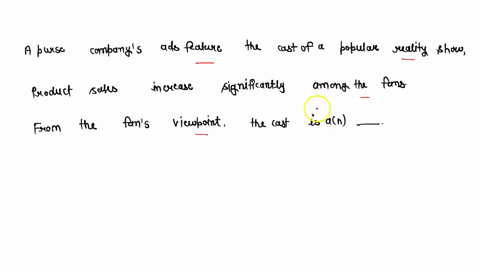 A purse company's ads feature the cast of a popular reality show,
Product sales increase significantly among the fans
From the fan's viewpoint, the cast is a(n) ___.